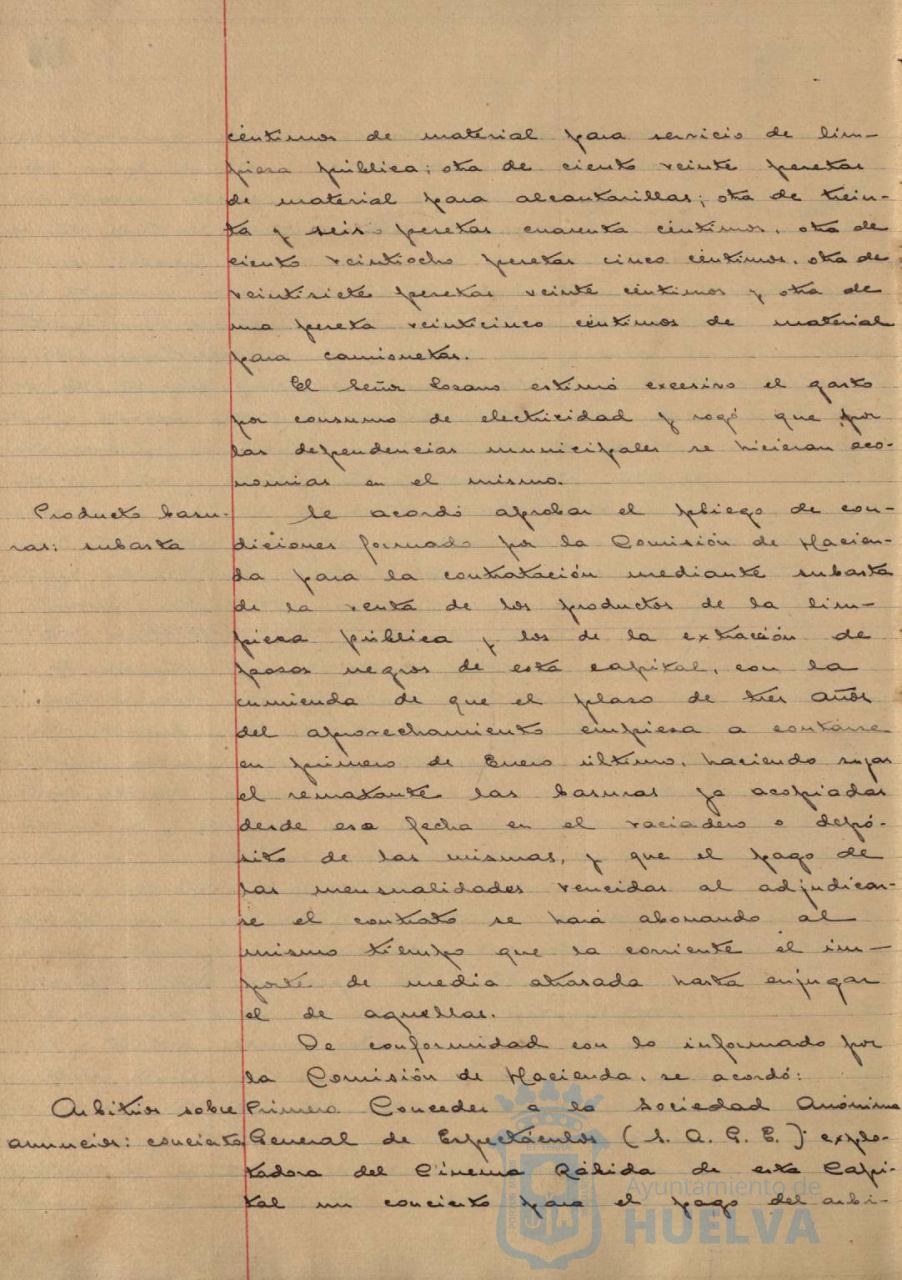 céntimos de material para servicio de lim-
pieza pública; otra de ciento veinte pesetas
de material para alcantarillas; otra de trein-
ta y seis pesetas cuarenta céntimos, otra de
ciento veintiocho pesetas cinco céntimos, otra de
veintisiete pesetas veinte céntimos y otra de
una peseta veinticinco céntimos de material
para camionetas.
El Señor Lozano estimó excesivo el gasto
por consumo de electricidad y rogó que por
las dependencias municipales se hicieran eco-
nomias en el mismo.
Producto basu-
ras: subasta
Se acordó aprobar el pliego de con-
diciones formado por la Comisión de Hacien-
da para la contratación mediante subasta
de la venta de los productos de la lim-
pieza pública y los de la extracción de
pozos negros de esta capital, con la
enmienda de que el plazo de tres años
del aprovechamiento empieza a contarse
en primero de Enero último, haciendo suyas
el rematante las basuras ya acopiadas
desde esa fecha en el vaciadero o depó-
sito de las mismas, y que el pago de
las mensualidades vencidas al adjudicar-
se el contrato se hará abonando al
mismo tiempo que la corriente el im-
porte de media atrasada hasta enjugar
el de aquellas.
De conformidad con lo informado por
la Comisión de Hacienda, se acordó:
Arbitrios sobre
anuncios: concierto
Primero Conceder a la Sociedad Anónima
General de Espectáculos (S. A. G. E.) explo-
tadora del Cinema Rábida de esta Capi-
tal un concierto para el pago del arbi-
Ayuntamiento de
HUELVA